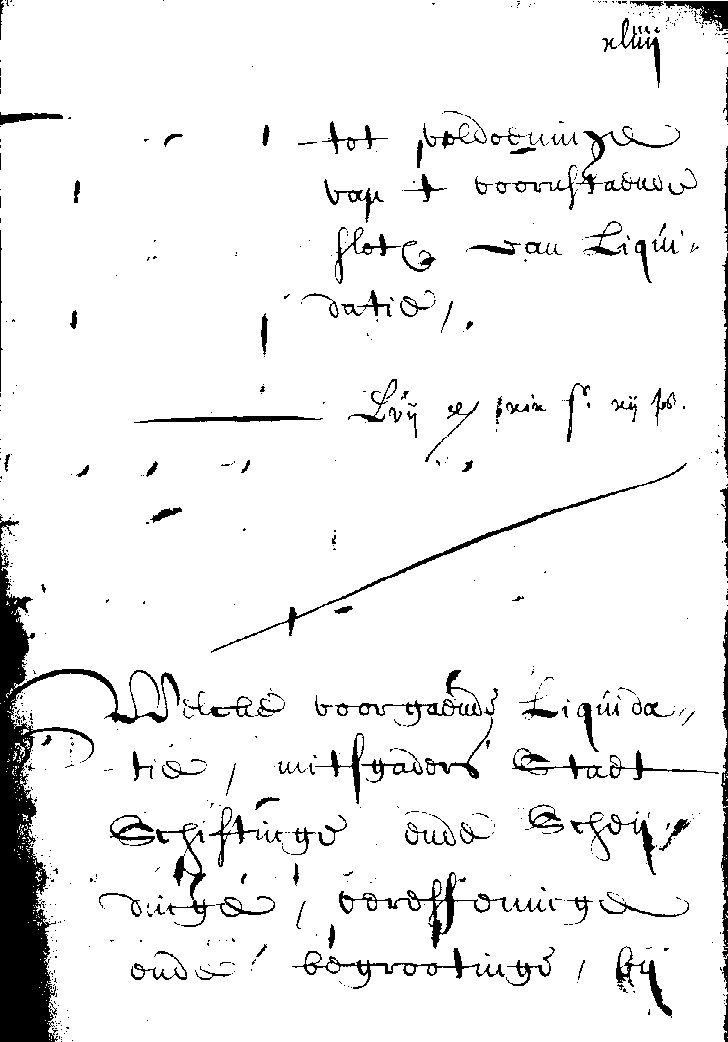 xliiij
tot voldoeninge
van t voorschtaende
slot van Liqui-
datie /.
Lvij xxix xij
Welcke voorgaende Liquida-
tie / mitsgaders Stadt
Schiftinge ende Schey-
dinge / vereffeninge
ende begrootinge / bij